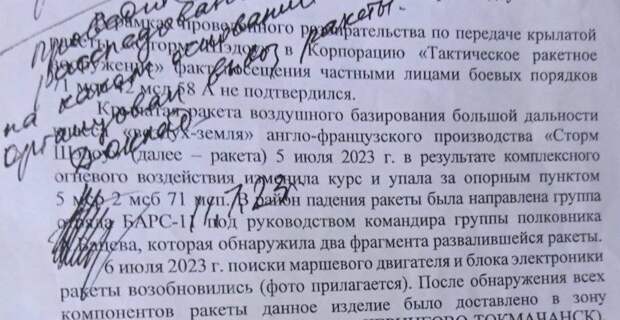 В рамках проведенного разбирательства по передаче крылатой
ракеты «Сторм Шэдоу» в Корпорацию «Тактическое ракетное
вооружение» факт посещения частными лицами боевых порядков
71 мсп 2 мсб 58 А не подтвердился.
Крылатая ракета воздушного базирования большой дальности
«воздух-земля» англо-французского производства «Сторм
(далее – ракета) 5 июля 2023 г. в результате комплексного
огневого воздействия изменила курс и упала за опорным пунктом
5 мср 2 мсб 71 мсп. В район падения ракеты была направлена группа
отряда БАРС-11 под руководством командира группы полковника
которая обнаружила два фрагмента развалившейся ракеты.
6 июля 2023 г. поиски маршевого двигателя и блока электроники
ракеты возобновились (фото прилагается). После обнаружения всех
компонентов ракеты данное изделие было доставлено в зону
ТОКМАЧАНСК).
на каком основании
организован вывоз ракеты.
Доклад
11.7.23